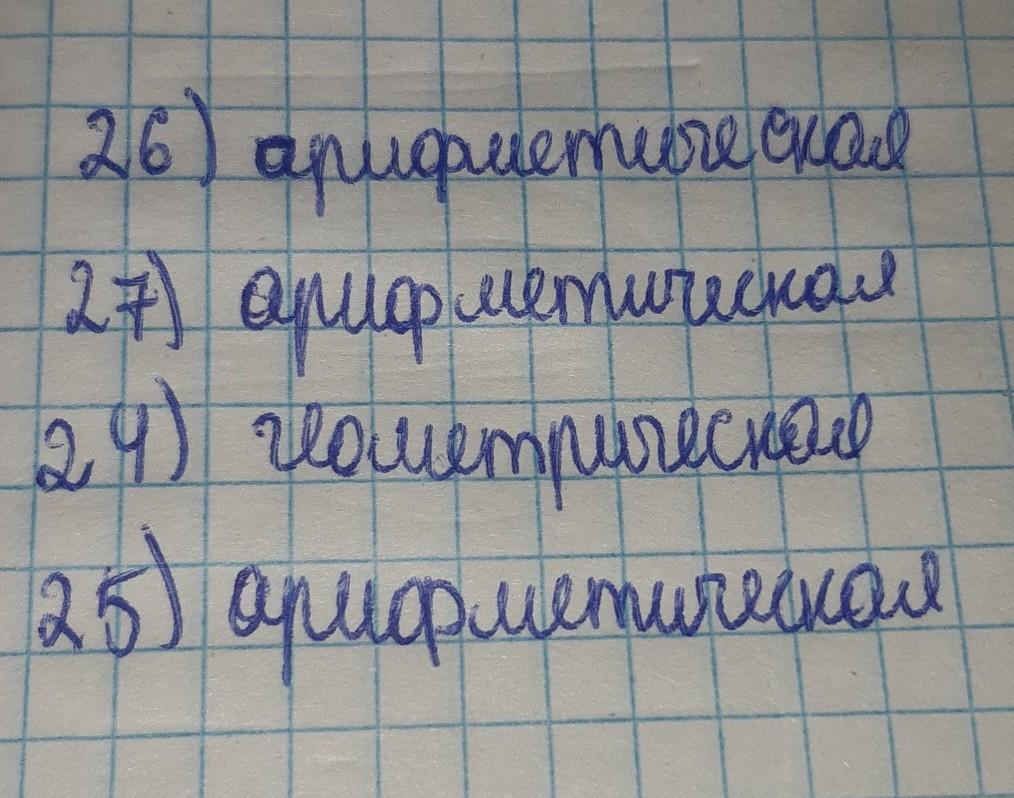 26) арифметическая
27) арифметическая
24) геометрическая
25) арифметическая